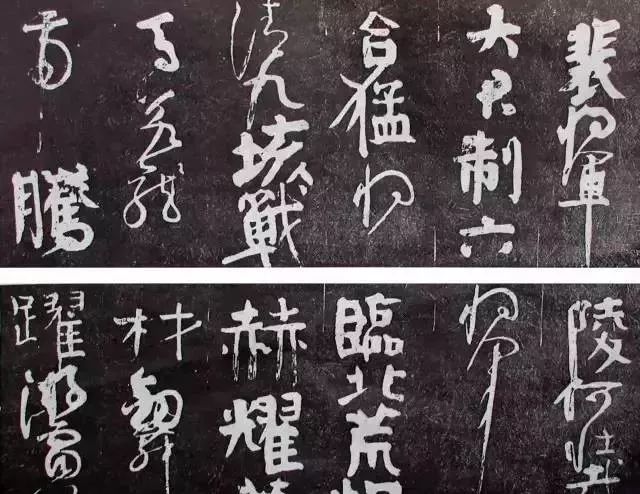 裴将軍
大君制六
合猛将
清九垓戰
馬若龍
虎騰
陵何壯
将軍
臨北荒烜
赫耀英
材劍舞
躍游雷